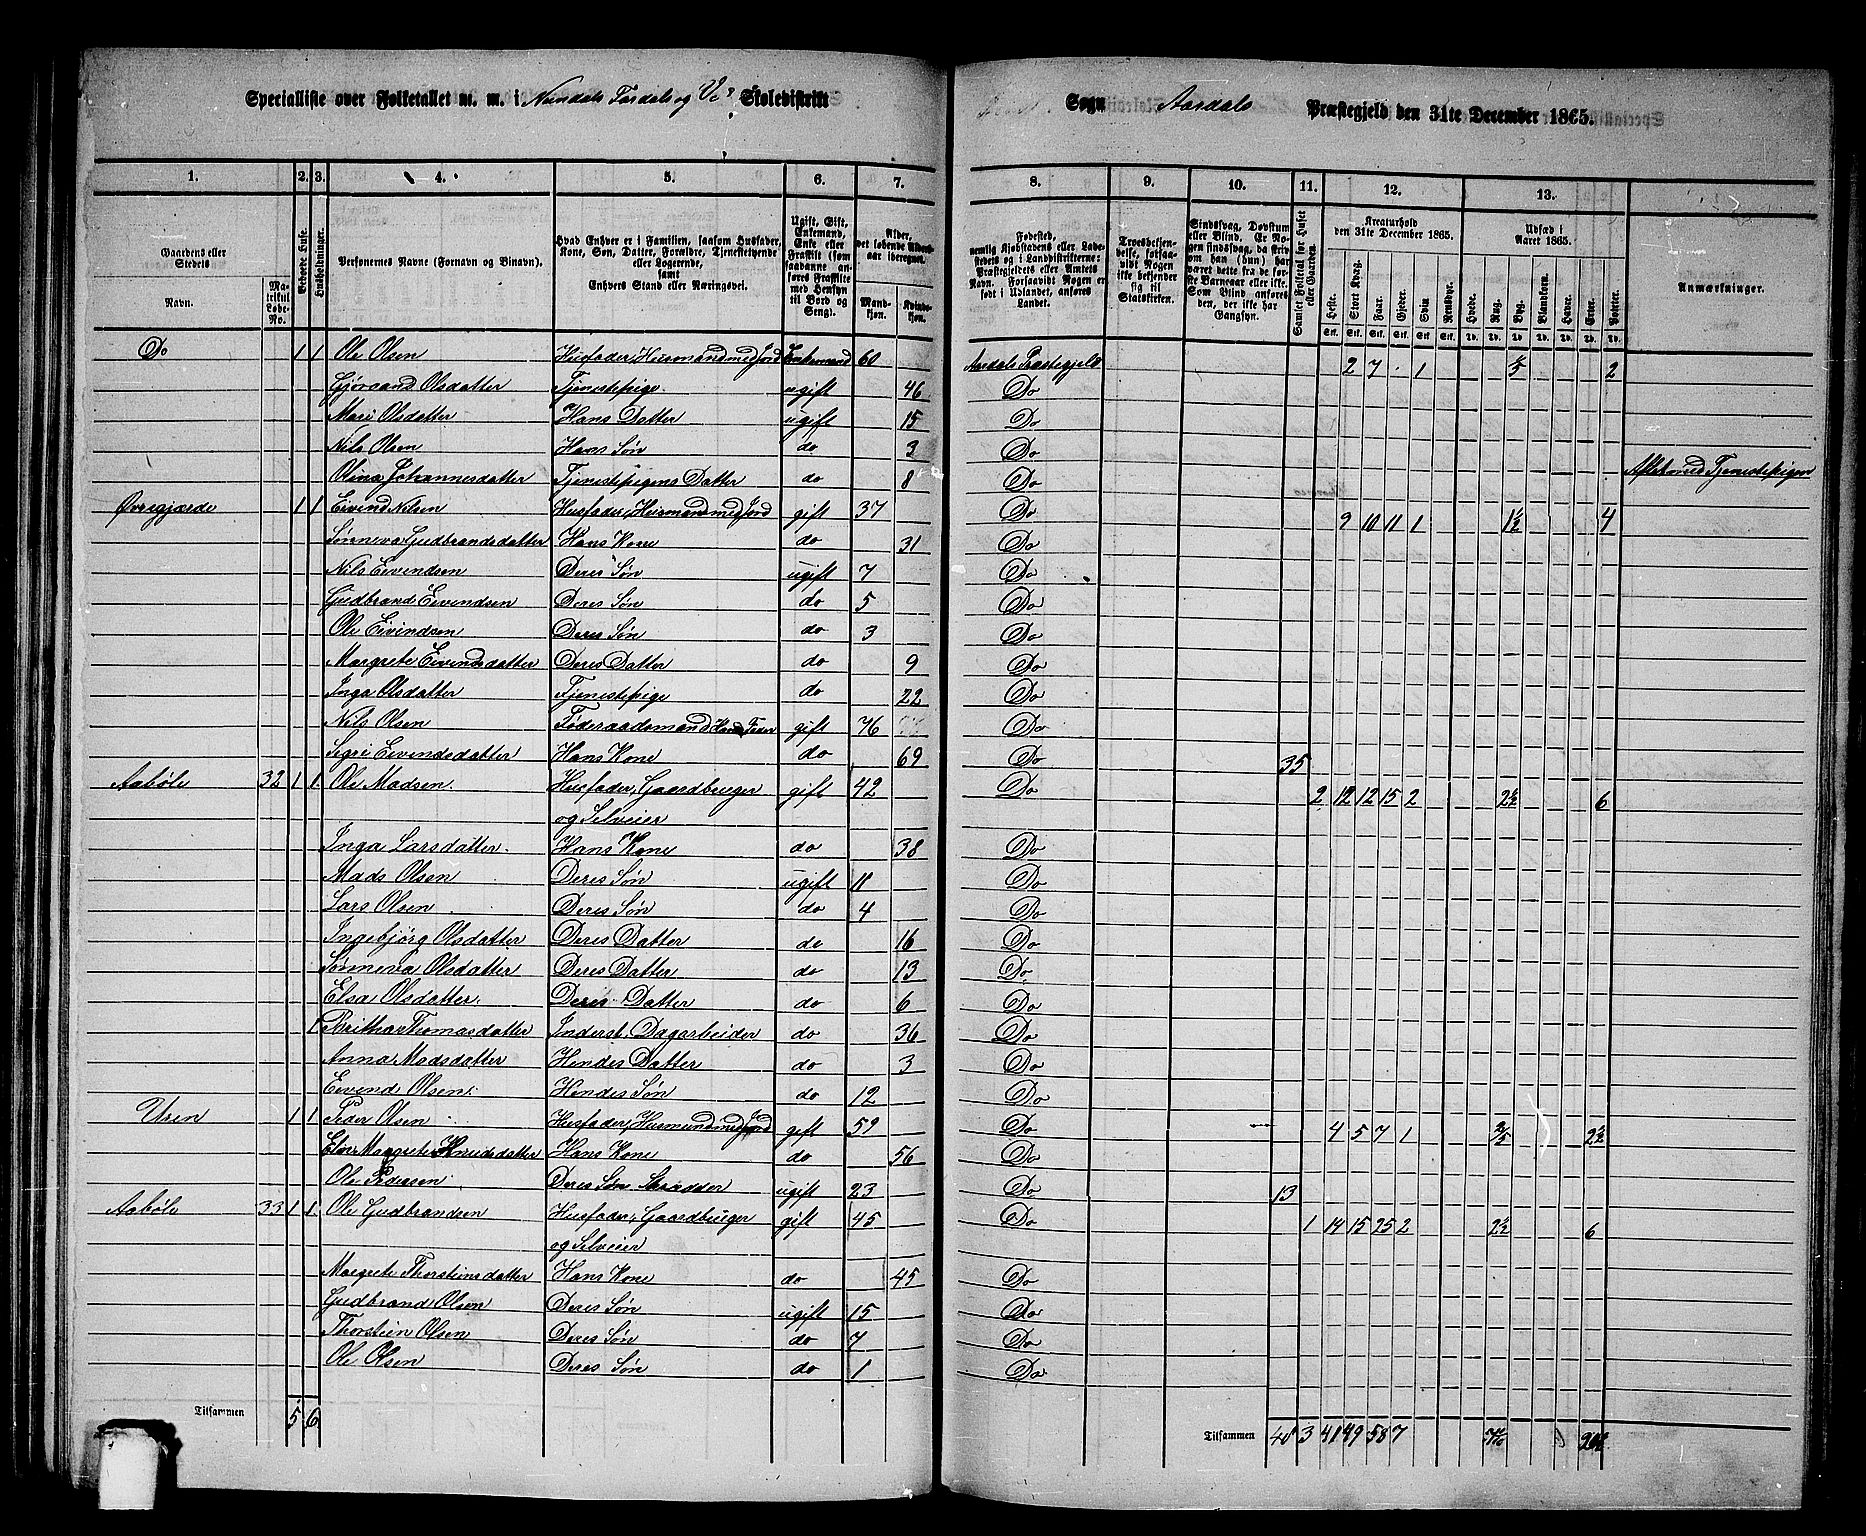 Specialliste over Folketallet m. m. i Nundals Fardals og Skoledistrikt Sogn Aardals Præstegjeld den 31te December 1865.
1. 2. 3. 4. 5. 6. 7. 8. 9. 10. 11. 12. 13.
Gaardens eller Stedets Navn. Matrikul Løbe-No. Beboede Huse. Husholdninger. Personernes Navne (Fornavn og Binavn). Hvad Enhver er i Familien, saasom Husfader, Kone, Søn, Datter, Forældre, Tjenestetyende eller Logerende, samt Enhvers Stand eller Næringsvei. Ugift, Gift, Enkemand, Enke eller Fraskilt (som saadanne anføres Fraskilte med Hensyn til Bord og Seng). Alder, det løbende Alders-aar iberegnet. Mandkjøn. Kvindekjøn.
Fødested, nemlig Kjøbstadens eller Ladestedets og i Landdistrikterne: Præstegjeldets eller Amtets Navn. Forsaavidt Nogen er født i Udlandet, anføres Landet. Troesbekjendelse, forsaavidt Nogen ikke bekjender sig til Statskirken. Sindssvag, Døvstum eller Blind. Er Nogen sindssvag, da skriv om han (hun) har været dette fra de første Barneaar eller ikke. Som Blind anføres den, der ikke har Gangsyn. Samlet Folketal for Huset eller Gaarden. Kreaturhold den 31te December 1865. Heste. Stort Kvæg. Faar. Gjeder. Svin. Rensdyr. Udsæd i Aaret 1865. Hvede. Rug. Byg. Blandkorn. Havre. Erter. Poteter. Anmærkninger.
Do 1 1 Ole Olsen Husfader, Husmand med Jord Enkemand 60 Aardals Præstegjeld 2 7 1 2
Gjøraand Olsdatter Tjenestepige ugift 46 Do
Mari Olsdatter Hans Datter ugift 15 Do
Nils Olsen Hans Søn do 3 Do
Olina Johannesdatter Tjenestepigens Datter do 8 Do Tjenestepigen
Øvregjærde 1 1 Eivind Nilsen Husfader, Husmand med Jord gift 37 Do 9 10 11 1 1½ 4
Sønneva Gudbrandsdatter Hans Kone do 31 Do
Nils Eivendsen Deres Søn ugift 7 Do
Gudbrand Eivendsen Deres Søn do 5 Do
Ole Eivindsen Deres Søn do 3 Do
Margrete Eivendsdatter Deres Datter do 9 Do
Inga Olsdatter Tjenestepige do 22 Do
Nils Olsen Føderaadsmand Hans Fader gift 76 Do
Sigri Eivendsdatter Hans Kone do 69 Do 35
Aabøle 32 1 1 Ole Madsen Husfader, Gaardbruger gift 42 Do 2 12 12 15 2 2½ 6
og Selveier
Inga Larsdatter Hans Kone do 38 Do
Mads Olsen Deres Søn ugift 11 Do
Lars Olsen Deres Søn do 4 Do
Ingebjörg Olsdatter Deres Datter do 16 Do
Sønneva Olsdatter Deres Datter do 13 Do
Elsa Olsdatter Deres Datter do 6 Do
1 Britha Thomasdatter Inderst, Dagarbeider do 36 Do
Anna Madsdatter Hendes Datter do 3 Do
Eivend Olsen Hendes Søn do 12 Do
Uren 1 1 Peder Olsen Husfader, Husmand med Jord gift 59 Do 4 5 7 1 2½
Margrete Knudsdatter Hans Kone do 56 Do
Ole Pedersen Deres Søn Skrædder ugift 23 Do 13
Aabøle 33 1 1 Ole Gudbrandsen Husfader, Gaardbruger gift 45 Do 1 14 15 25 2 2½ 6
og Selveier
Margrete Thorsteinsdatter Hans Kone do 45 Do
Gudbrand Olsen Deres Søn ugift 15 Do
Thorstein Olsen Deres Søn do 7 Do
Ole Olsen Deres Søn do 1 Do
Tilsammen 5 6 Tilsammen 3 41 49 58 7